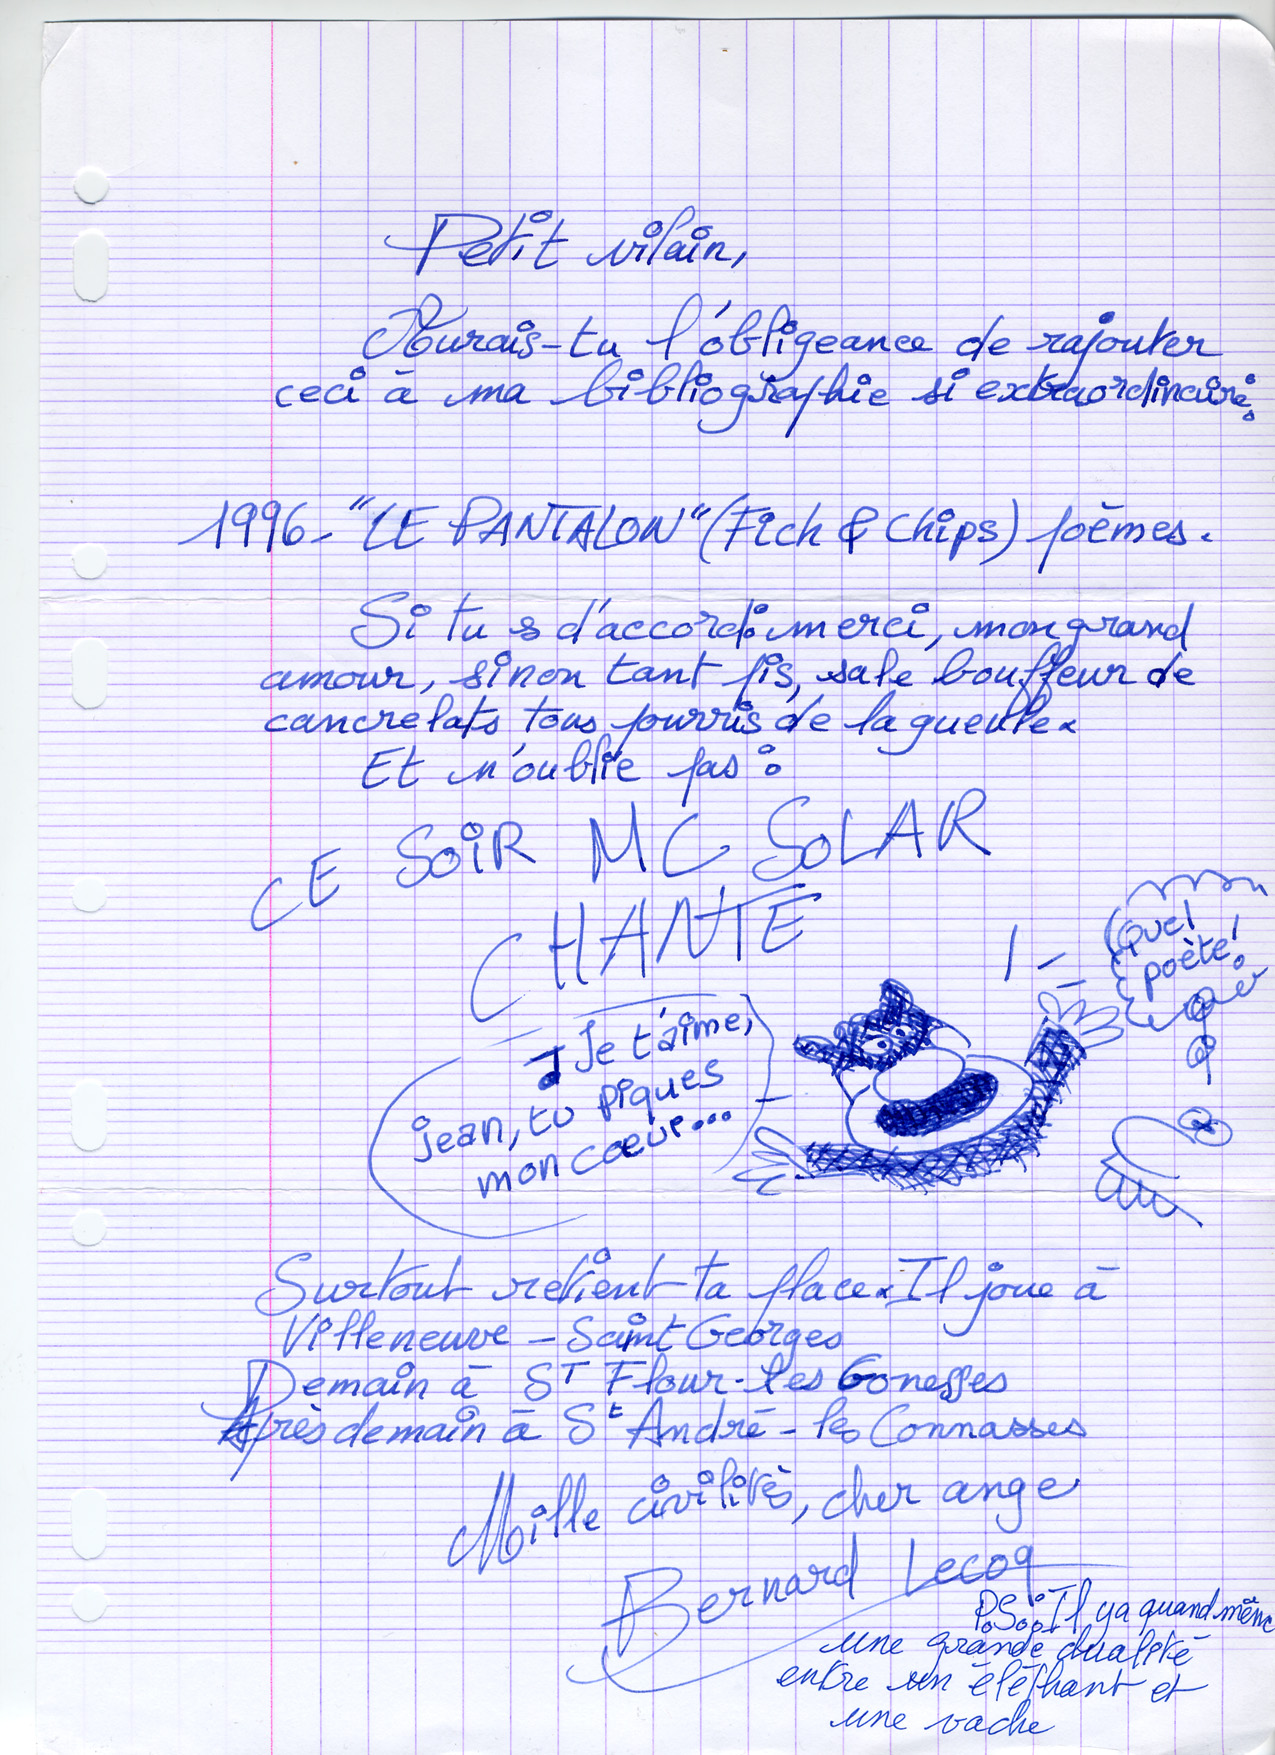 Petit vilain,
Aurais-tu l'obligeance de rajouter
ceci à ma bibliographie si extraordinaire:
1996- "LE PANTALON" (Fich & Chips) poèmes.
Si tu s d'accord: merci, mon grand
amour, sinon tant pis, sale bouffeur de
cancrelats tous pourris de la gueule.
Et n'oublie pas :
CE SOIR MC SOLAR
CHANTE
Quel
poète!
Je t'aime,
jean, tu piques
mon coeur...
Surtout retient ta place. Il joue à
Villeneuve - Saint Georges
Demain à ST Flour-les Gonesses
Après demain à St André - les Connasses
Mille civilités, cher ange
Bernard Lecoq
P.S.: Il y a quand même
une grande dualité
entre un éléphant et
une vache